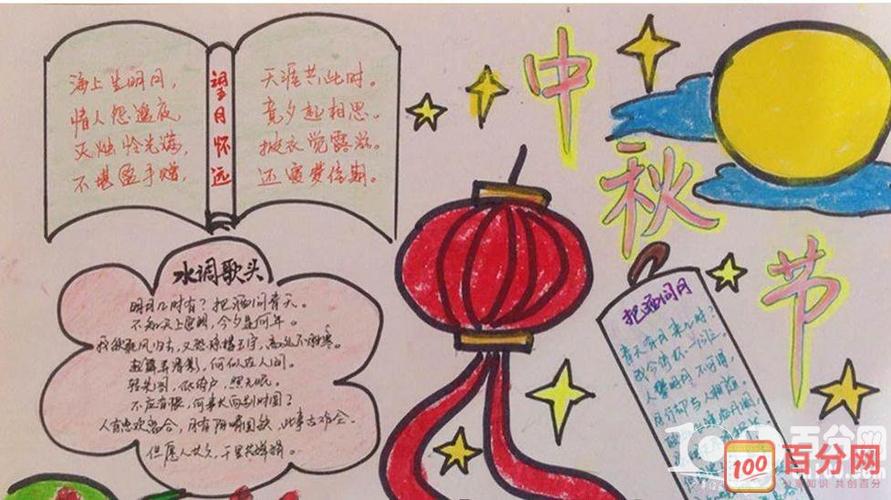 海上生明月，
情人怨遥夜，
灭烛怜光满，
不堪盈手赠，
望月怀远
天涯共此时。
竟夕起相思。
披衣觉露滋。
还寝梦佳期。
中秋节
水调歌头
明月几时有？把酒问青天。
不知天上宫阙，今夕是何年。
我欲乘风归去，又恐琼楼玉宇，高处不胜寒。
起舞弄清影，何似在人间。
转朱阁，低绮户，照无眠。
不应有恨，何事长向别时圆？
人有悲欢离合，月有阴晴圆缺，此事古难全。
但愿人长久，千里共婵娟。
把酒问月
青天有月来几时？
我今停杯一问之。
人攀明月不可得，
月行却与人相随。
100
百分网
共创百分